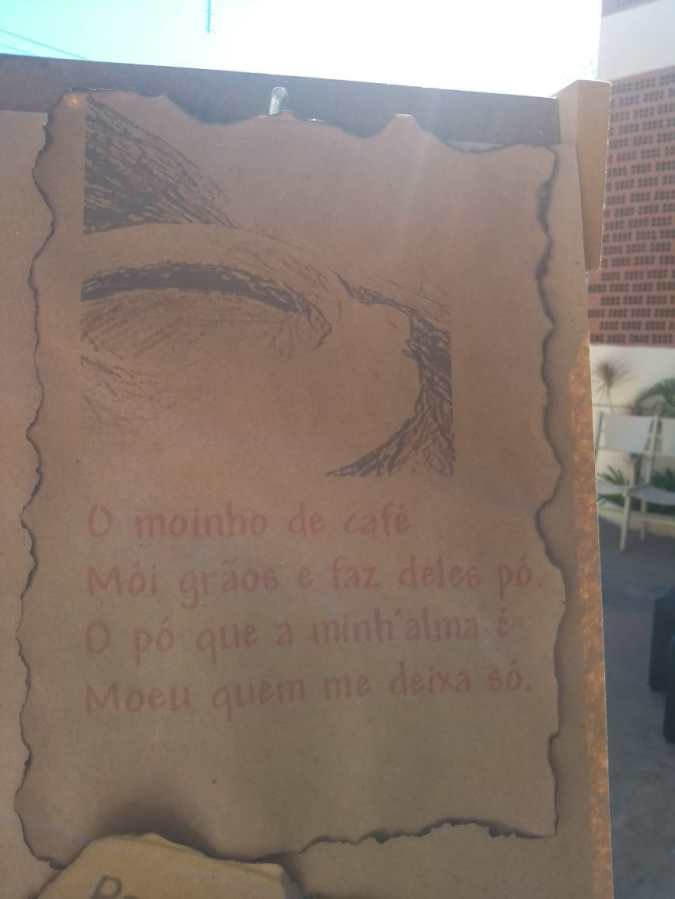 O moinho de café
Mói grãos e faz deles pó.
O pó que a minh'alma é
Moeu quem me deixa só.